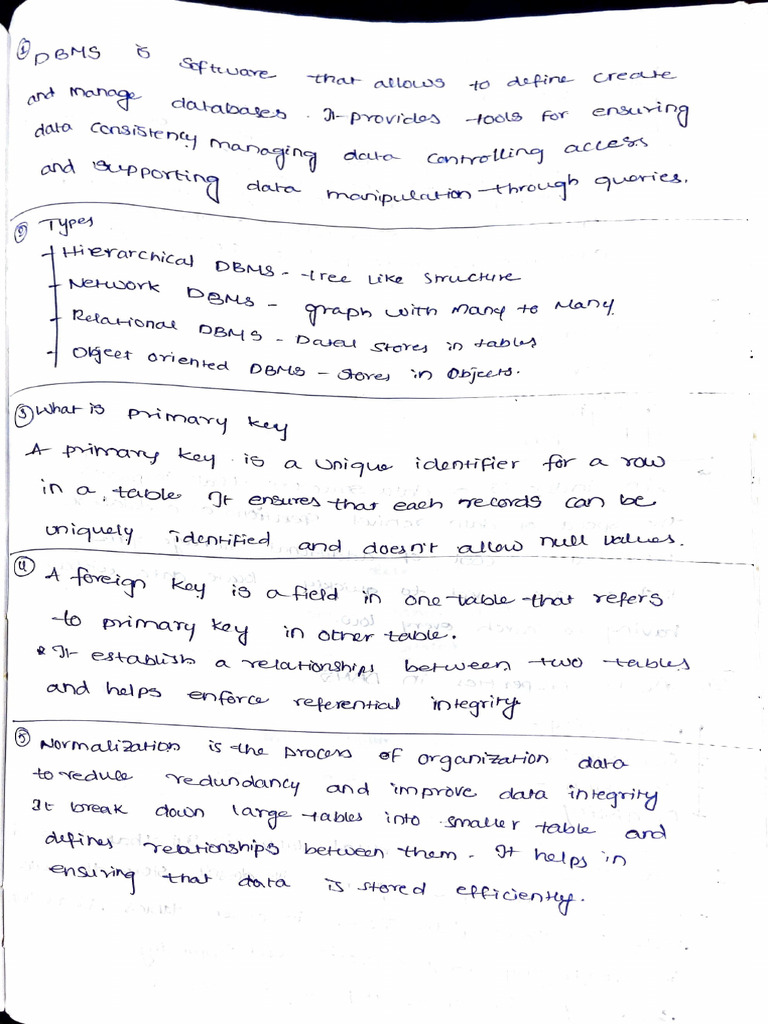 ① DBMS is software that allows to define create
and manage databases. It provides tools for ensuring
data consistency managing data controlling access
and supporting data manipulation through queries.
② Types
Hierarchical DBMS - tree like structure
Network DBMS - graph with many to many
Relational DBMS - Data stores in tables
Object oriented DBMS - stores in objects.
③ What is primary key
A primary key is a unique identifier for a row
in a table It ensures that each records can be
uniquely identified and doesn't allow null values.
④ A foreign key is a field in one table that refers
to primary key in other table.
• It establish a relationships between two tables
and helps enforce referential integrity
⑤ Normalization is the process of organization data
to reduce redundancy and improve data integrity
It break down large tables into smaller table and
defines relationships between them. It helps in
ensuring that data is stored efficiently.